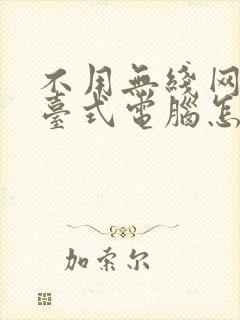 不用無綫网
臺式電腦怎
加索尔